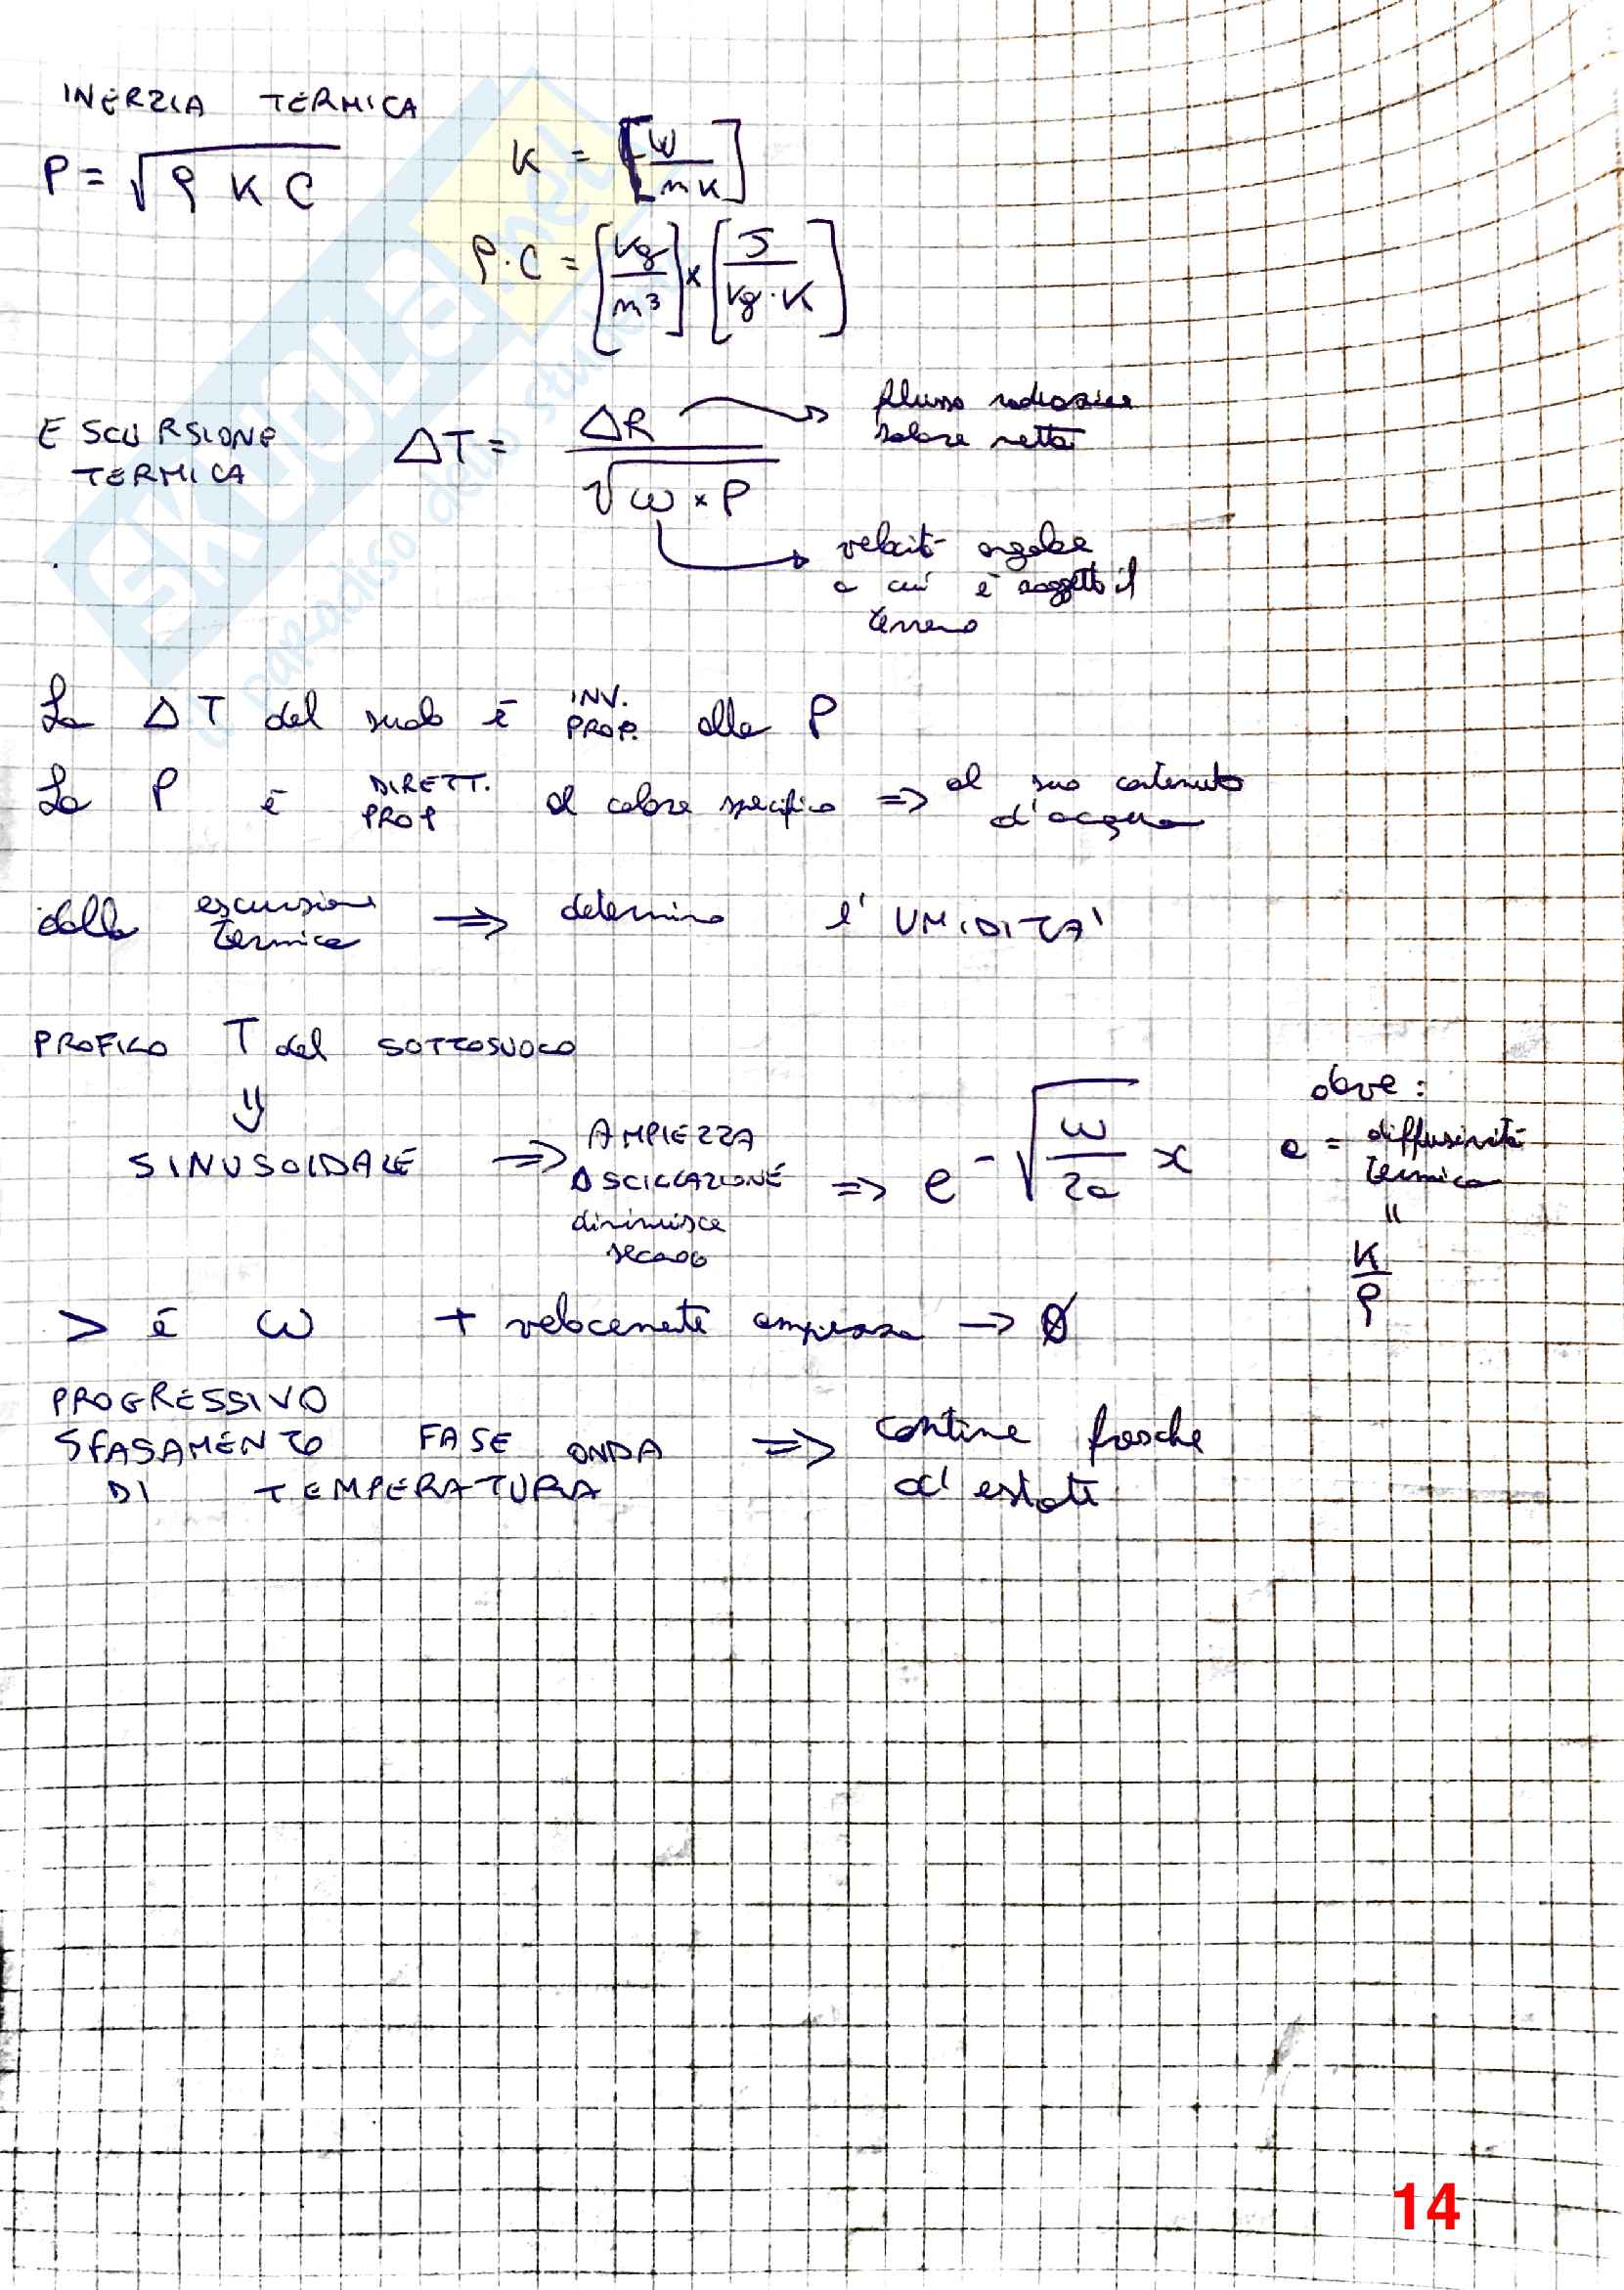 INERZIA TERMICA
P = √ρ K C
K = [W / m K]
ρ·C = [kg / m³] × [J / kg·K]
ESCURSIONE TERMICA
ΔT = ΔR / √ω × P
flusso radiazione
solare netta
velocità angolare
a cui è soggetto il
terreno
La ΔT del suolo è INV. PROP. alla P
La P è DIRETT. PROP al calore specifico => al suo contenuto d'acqua
dalla escursione termica => determino l'UMIDITA'
PROFILO T del SOTTOSUOLO
⇓
SINUSOIDALE => AMPIEZZA OSCILLAZIONE diminuisce secondo => e^-√(ω/2a) x
dove:
a = diffusività termica
=
K/ρ
> è ω + velocemente ampiezza → 0
PROGRESSIVO
SFASAMENTO FASE ONDA => cantine fresche
DI TEMPERATURA d'estate
14
skuola.net
il paradiso dello studente